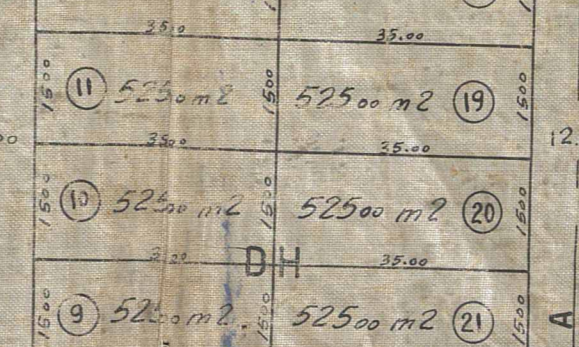 35.00 35.00
1500 11 52500 m2 1500 52500 m2 19 1500
35.00 35.00 12.
1500 10 52500 m2 1500 52500 m2 20 1500
DH 35.00
1500 9 52500 m2 1500 52500 m2 21 1500 A